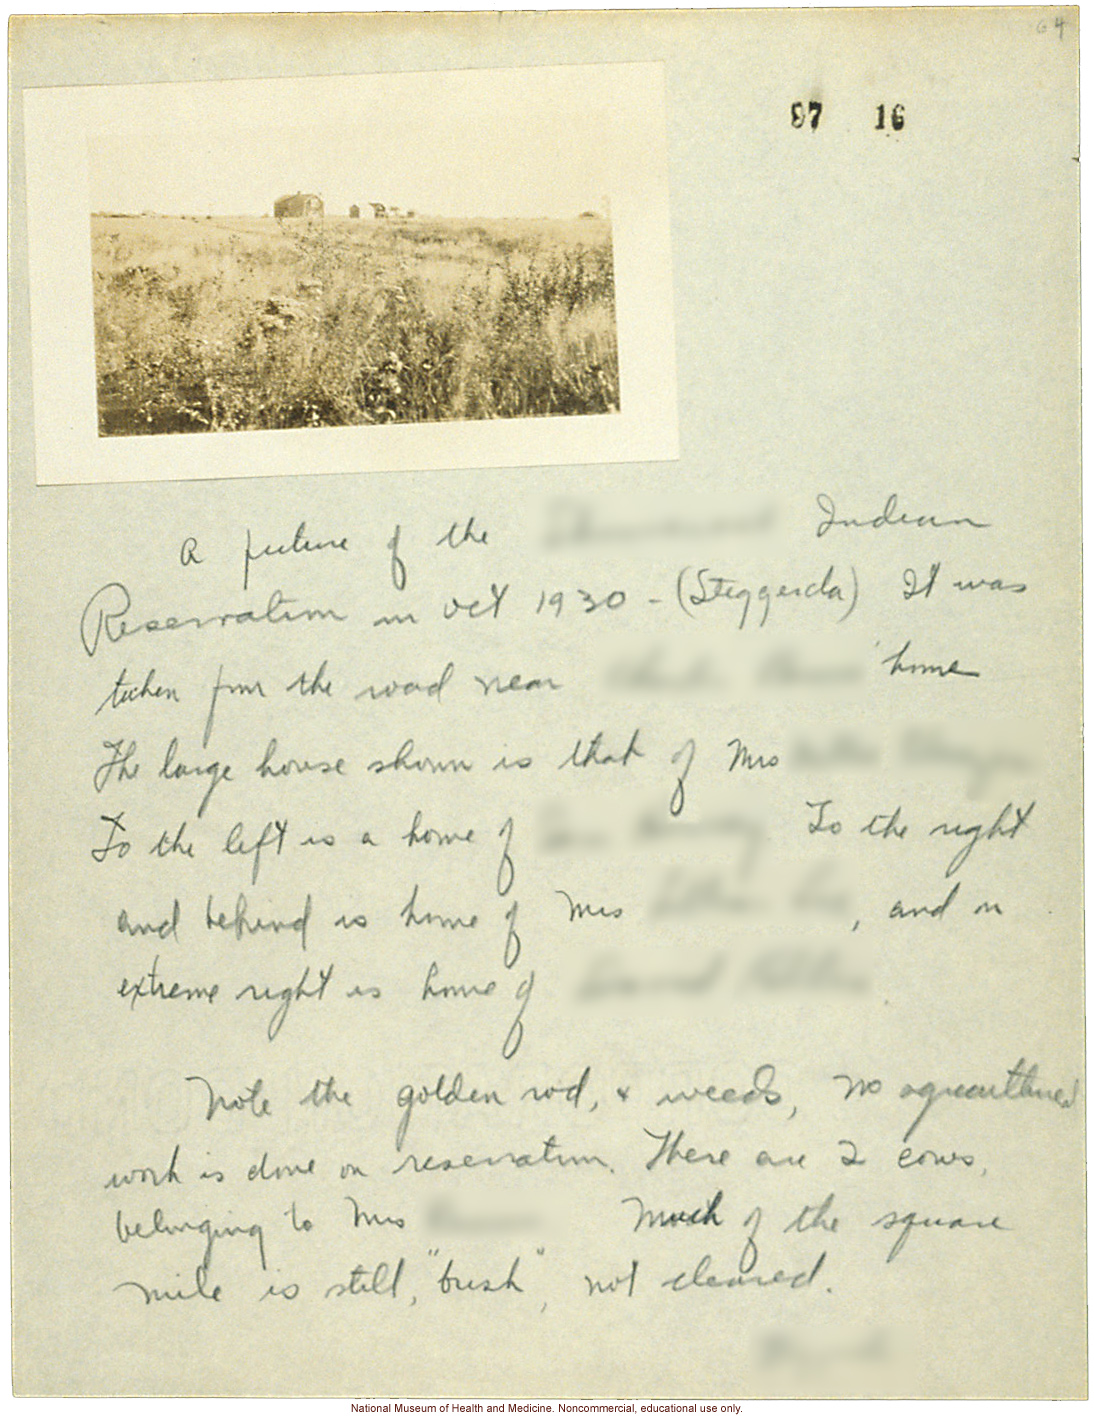 G 4
97 16
A picture of the Indian
Reservation in Oct 1930 - (Steggerda) It was
taken from the road near home
The large house shown is that of Mrs
To the left is a home of To the right
and behind is home of Mrs , and on
extreme right is home of
Note the golden rod, & weeds, No agricultural
work is done on reservation. There are 2 cows,
belonging to Mrs Much of the square
mile is still, "bush", not cleared.
National Museum of Health and Medicine. Noncommercial, educational use only.